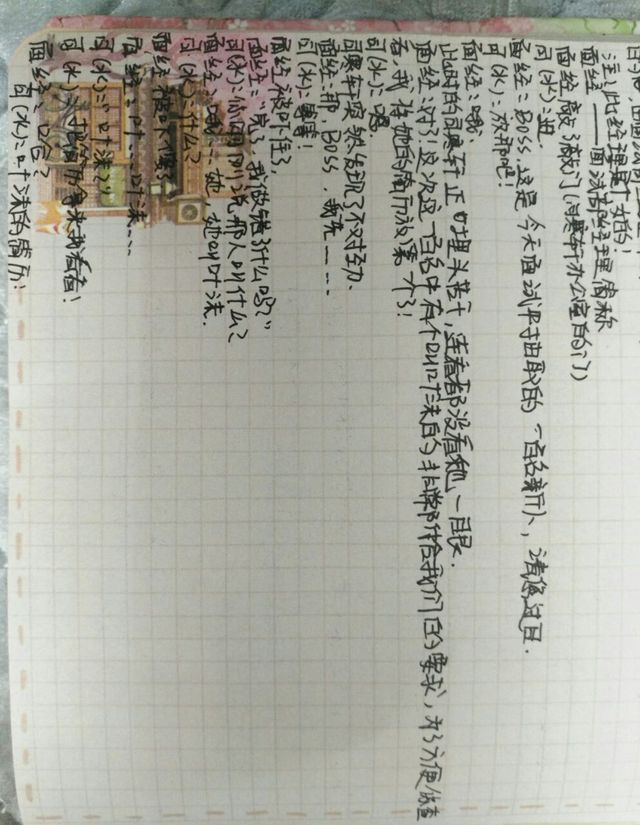 注:此经理是女的!
面经——面试部经理简称
面经敲了敲门(司寒轩办公室的门)
司(水):进.
面经:BOSS,这是今天面试中抽取的一百名新人,请您过目.
司(水):放那吧!
面经:哦.
此时的司寒轩正时埋头苦干,连看都没看她一眼.
面经:对了!这次这一百名中有个叫叶沫的非常符合我们的要求,为了方便你查
看,我将她的简历放第一个了!
司(水):嗯.
司寒轩突然发现了不对劲.
面经:那,BOSS,我先……
司(水):等等!
面经被吓住了.
面经:"完了,我做错了什么吗?"
司(水):你刚刚说那人叫什么?
面经:哦…她,她叫叶沫.
司(水):什么?
面经被吓傻了
面经:叶…叶沫…
司(水):叶沫??
司(水):把简历拿来我看看!
面经:合?
司(水):叶沫的简历!